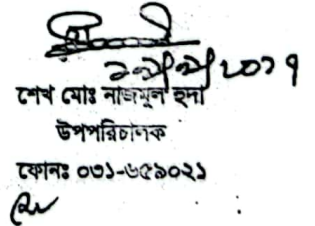 শেখ মোঃ নাজমুল হুদা
উপপরিচালক
ফোনঃ ০৩১-৬৫৯০২১